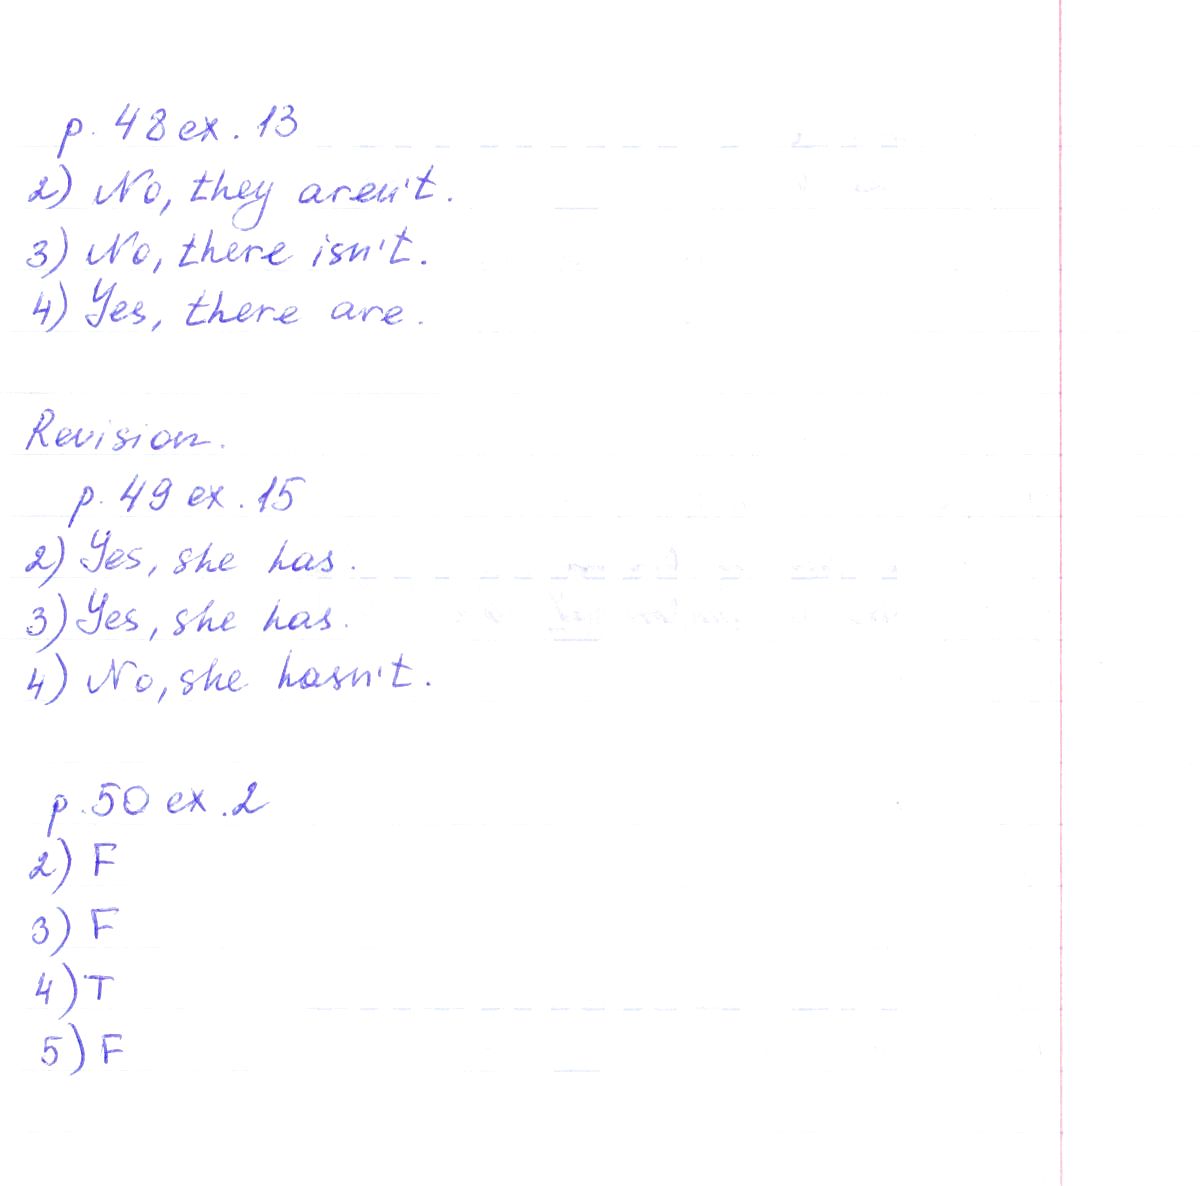 p. 48 ex. 13
2) No, they aren't.
3) No, there isn't.
4) Yes, there are.
Revision.
p. 49 ex. 15
2) Yes, she has.
3) Yes, she has.
4) No, she hasn't.
p. 50 ex. 2
2) F
3) F
4) T
5) F